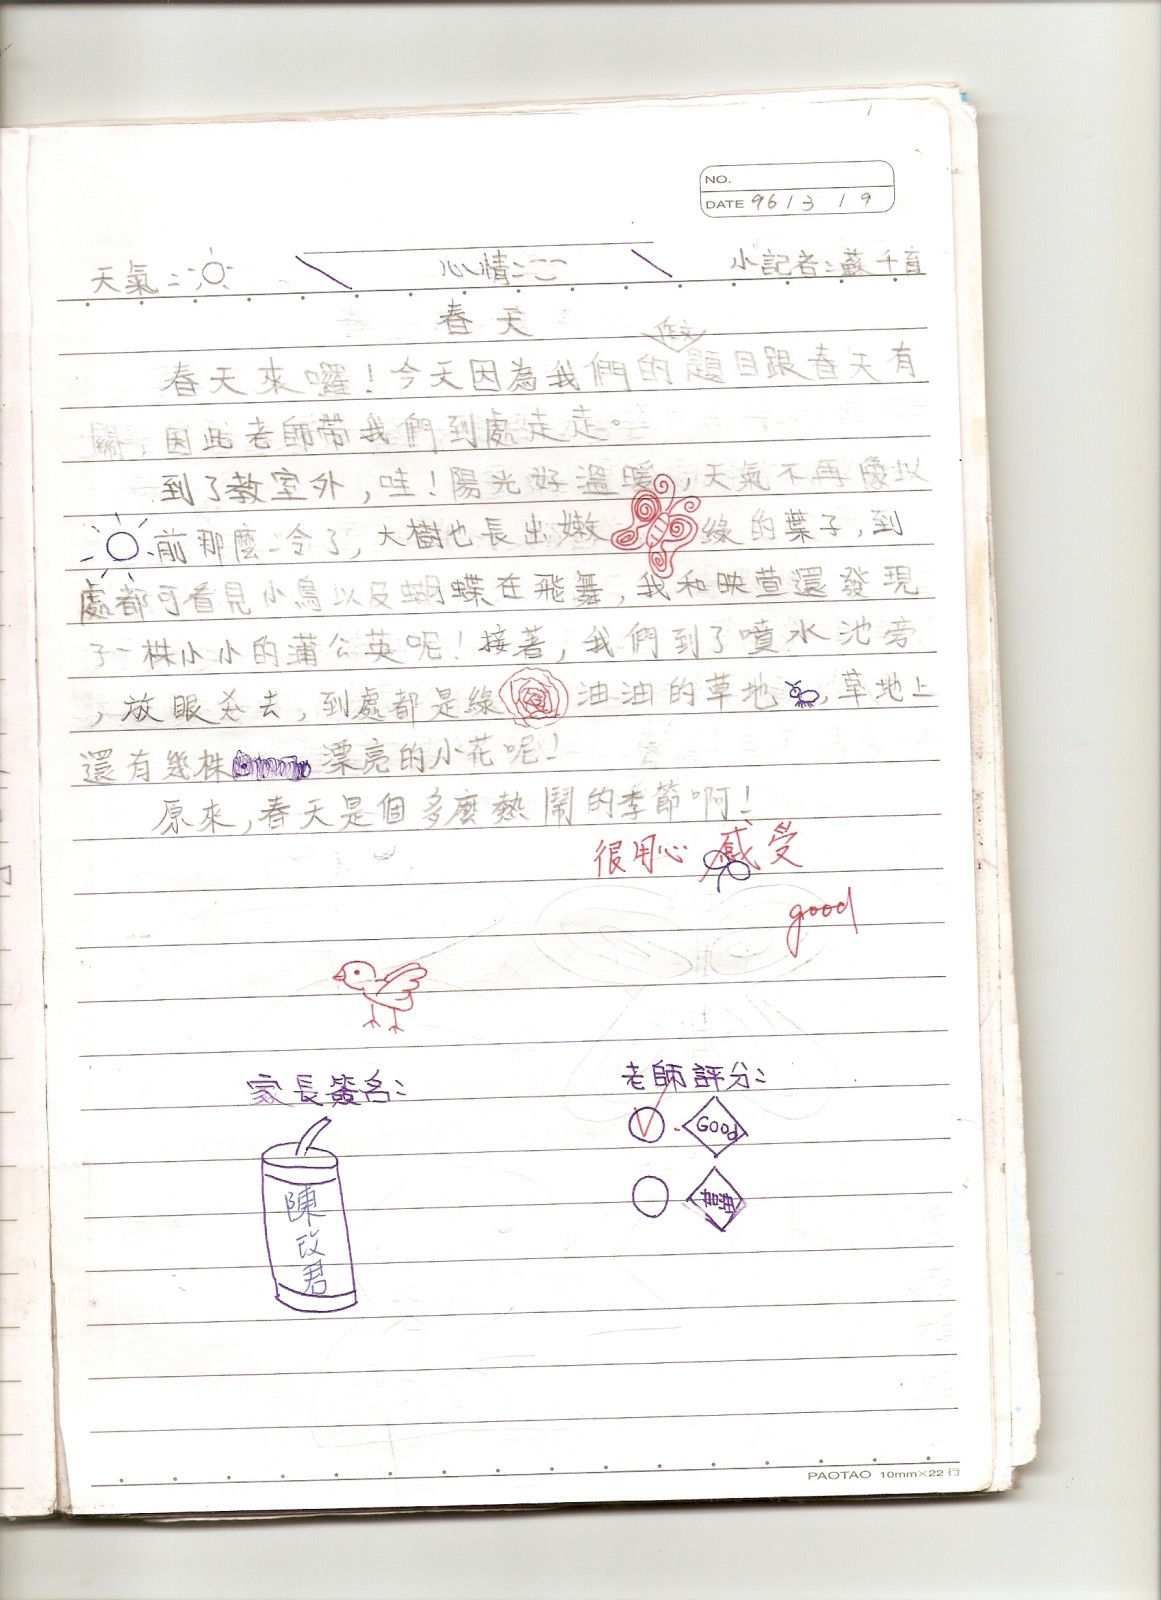 NO.
DATE 96 / 3 / 9
天氣： 心情： 小記者：蘇千育
春天
作文
春天來囉！今天因為我們的題目跟春天有
關，因此老師帶我們到處走走。
到了教室外，哇！陽光好溫暖，天氣不再像以
前那麼冷了，大樹也長出嫩綠的葉子，到
處都可看見小鳥以及蝴蝶在飛舞，我和映萱還發現
了一株小小的蒲公英呢！接著，我們到了噴水池旁
，放眼望去，到處都是綠油油的草地，草地上
還有幾株漂亮的小花呢！
原來，春天是個多麼熱鬧的季節啊！
很用心 感受
good
家長簽名： 老師評分：
Good
陳
君
PAOTAO 10mm×22行